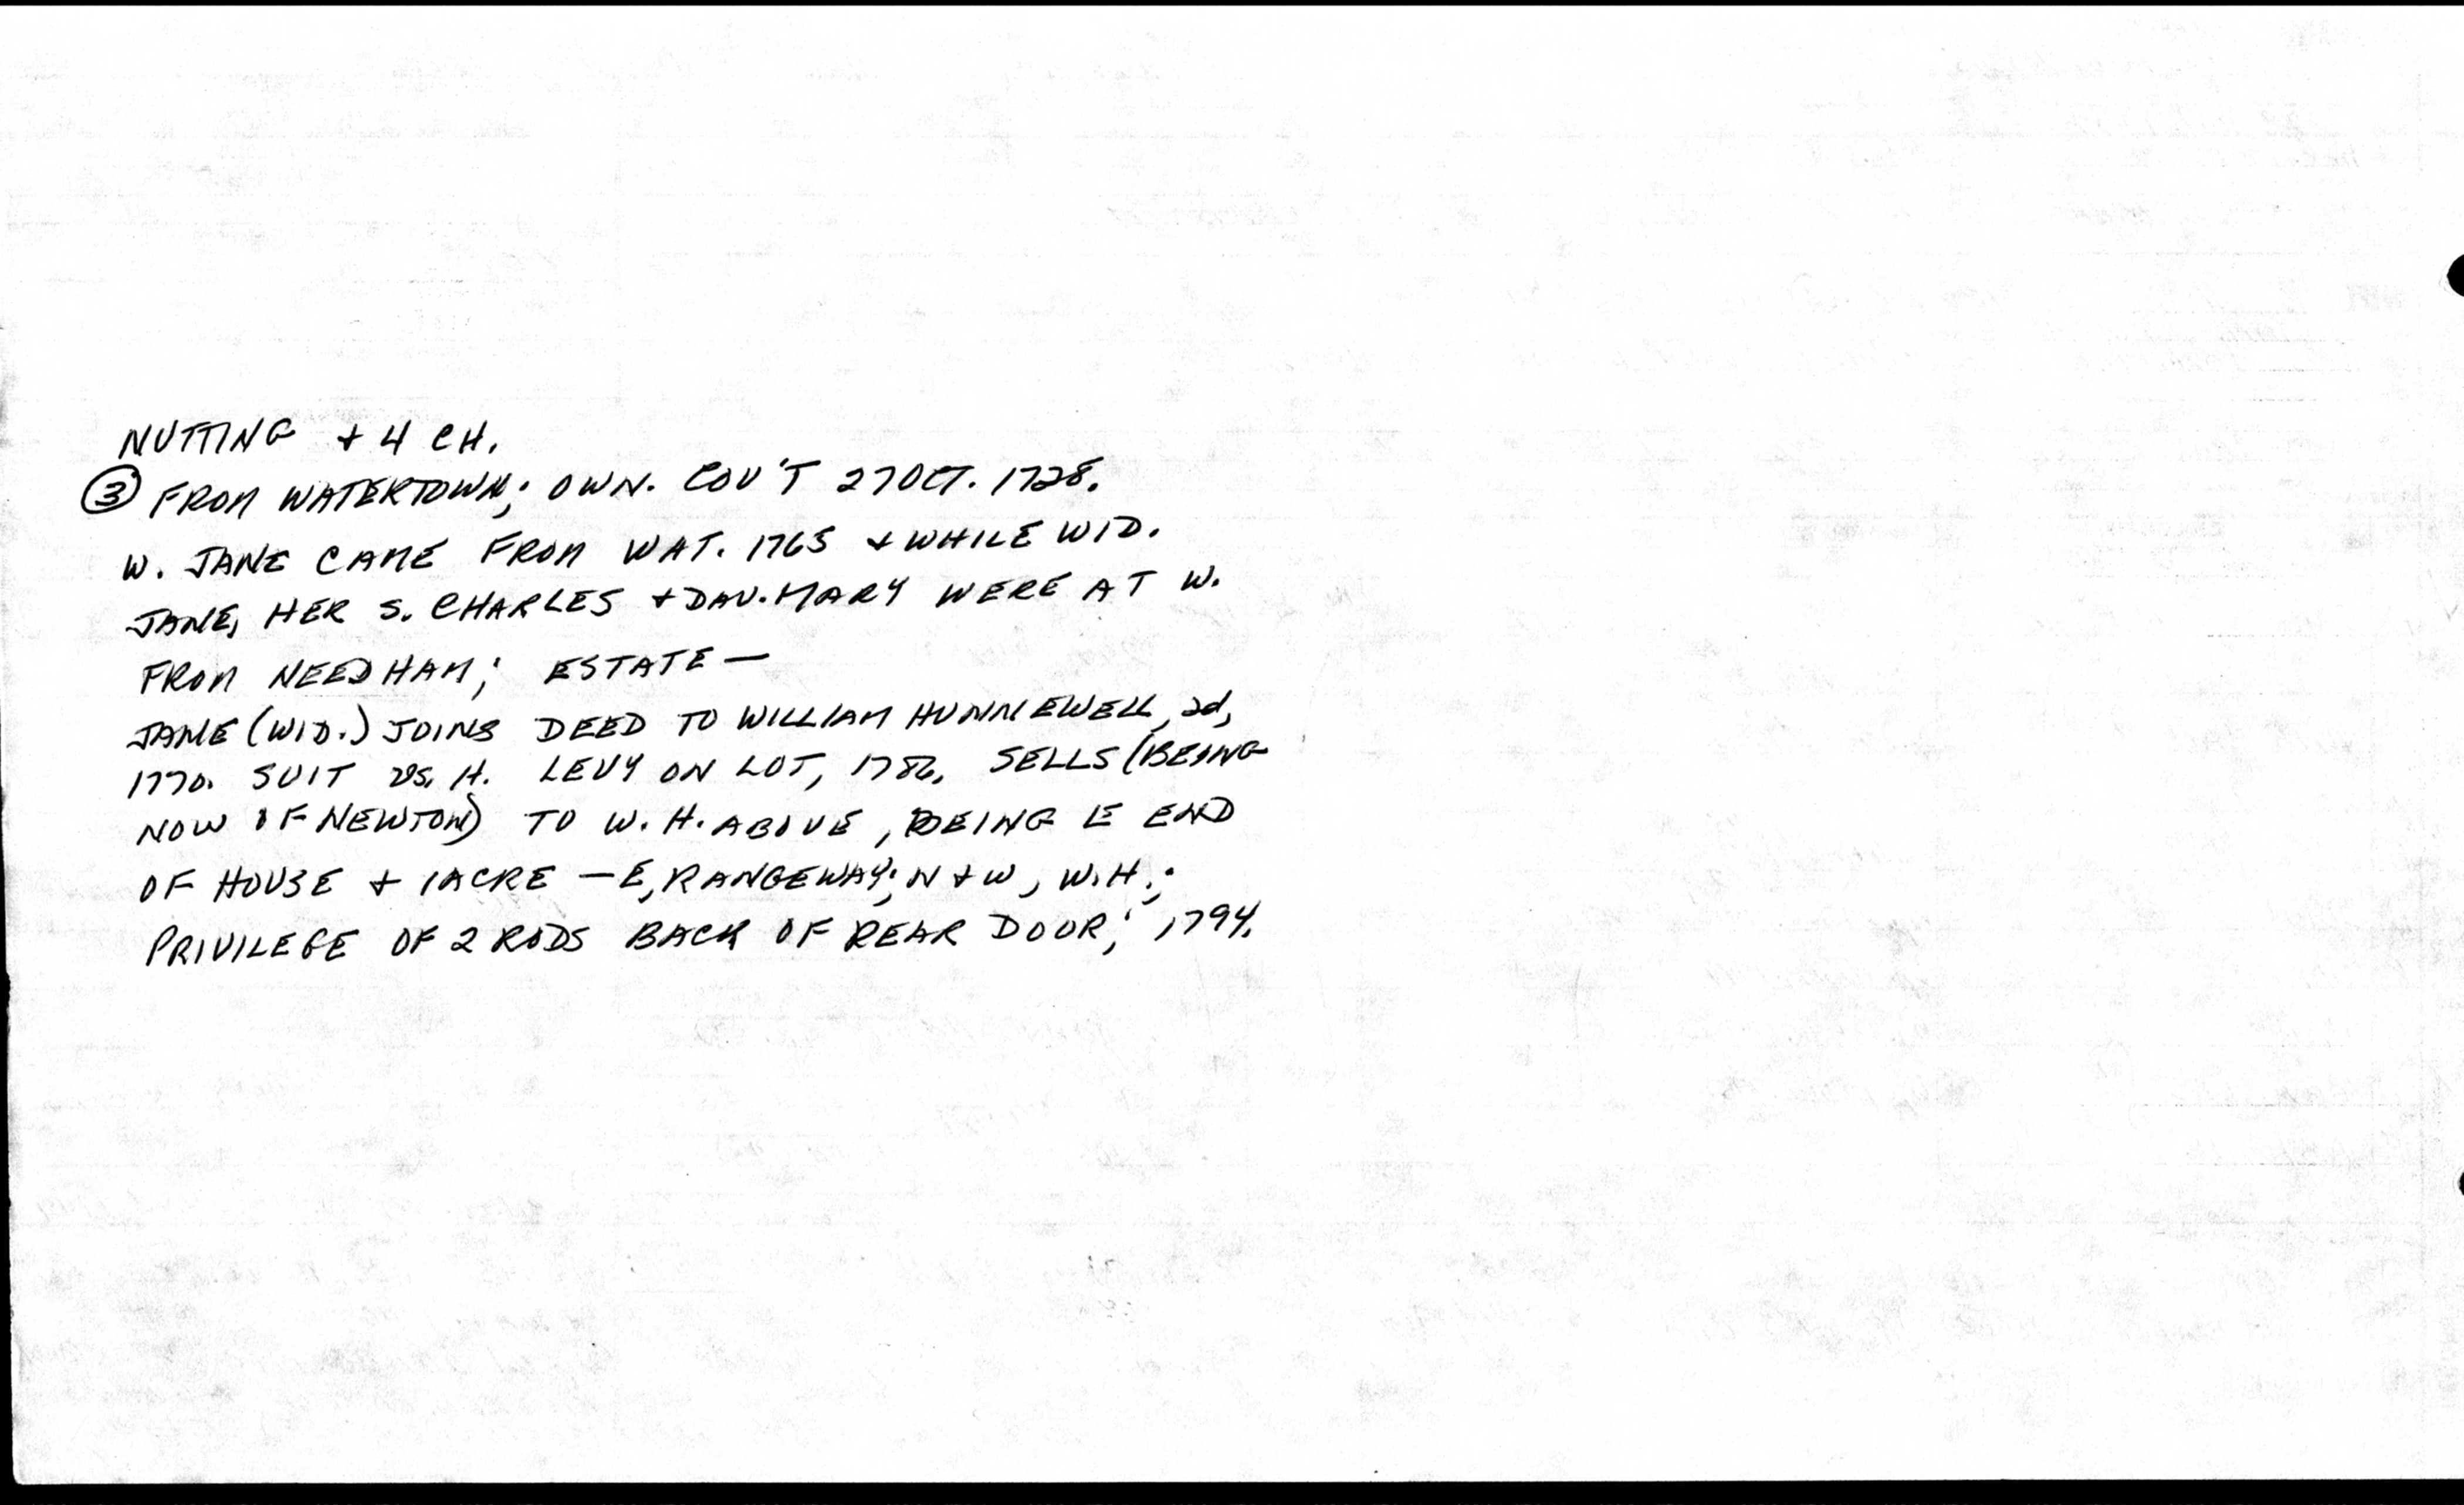 NUTTING + 4 CH.
③ FROM WATERTOWN; OWN. COV'T 27 OCT. 1728.
W. JANE CAME FROM WAT. 1763 + WHILE WID.
JANE, HER S. CHARLES + DAU. MARY WERE AT W.
FROM NEEDHAM; ESTATE —
JANE (WID.) JOINS DEED TO WILLIAM HUNNEWELL, 2d,
1770. SUIT vs. H. LEVY ON LOT, 1786. SELLS (BEING
NOW OF NEWTON) TO W. H. ABOVE, BEING E END
OF HOUSE + 1 ACRE — E, RANGEWAY; N + W, W.H.;
PRIVILEGE OF 2 RODS BACK OF REAR DOOR; 1794.